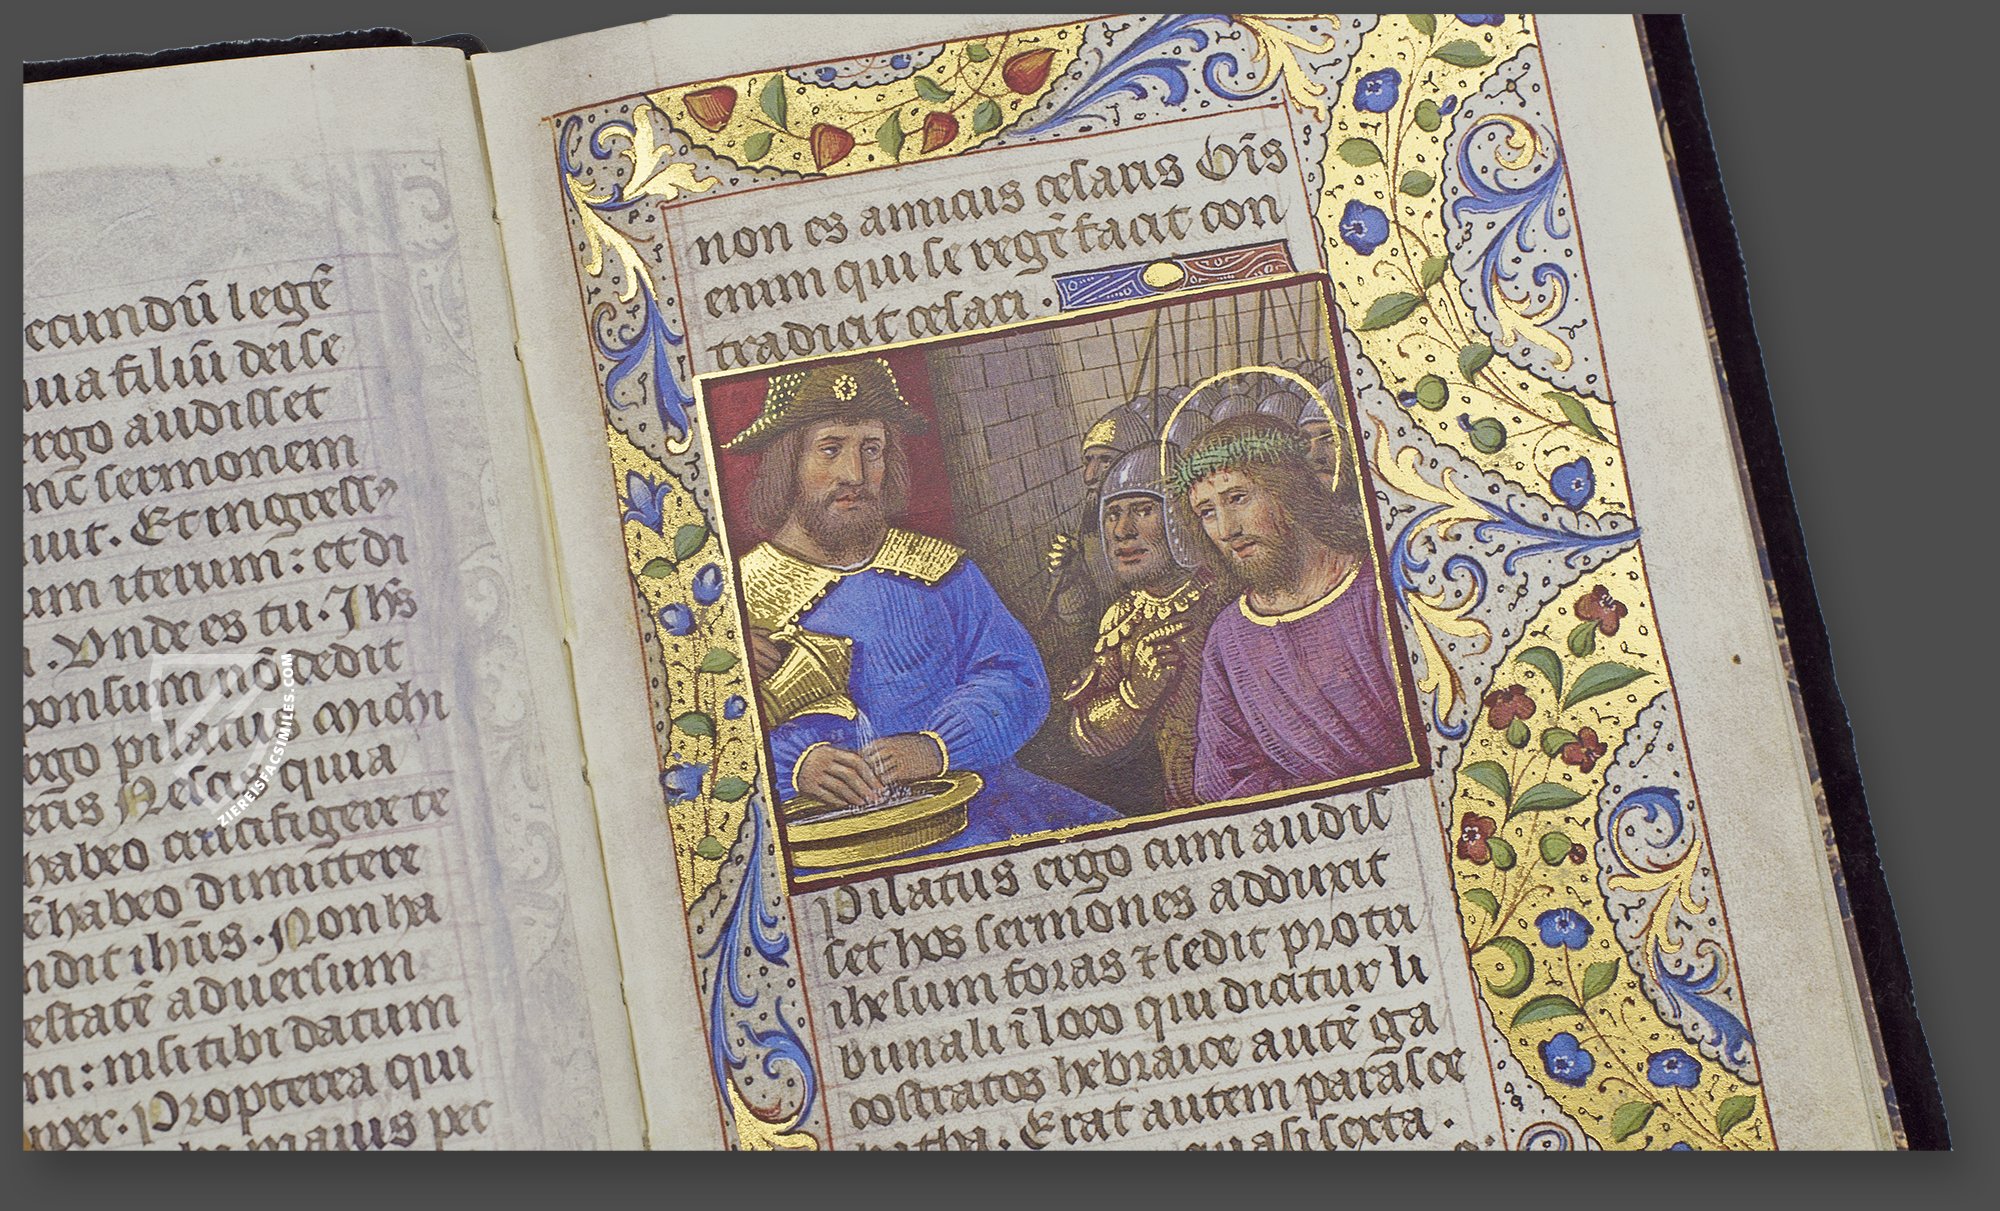 ecundū legē
ua filiū dei se
ergo audisset
nc sermonem
uit. Et ingress9
um iterum: et di
. Unde es tu. Ihs
ponsum nō dedit
ergo pilatus Michi
eris Nescis quia
habeo crucifigere te
ē habeo dimittere
ndit ihūs. Non ha
estatē adversum
m: nisi tibi datum
Propterea qui
maius pec
non es amicus cesaris Oīs
enim qui se regē facit con
tradicit cesari.
Pilatus ergo cum audis
set hos sermones adduxit
ihesum foras ⁊ sedit pro tri
bunali ī loco qui dicitur li
costratos hebraice autē ga
batha. Erat autem parasce
quasi sexta.
ZIEREISFACSIMILES.COM